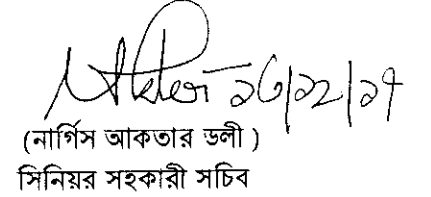 Akter ২৬/১২/১৭
(নার্গিস আকতার ডলী )
সিনিয়র সহকারী সচিব